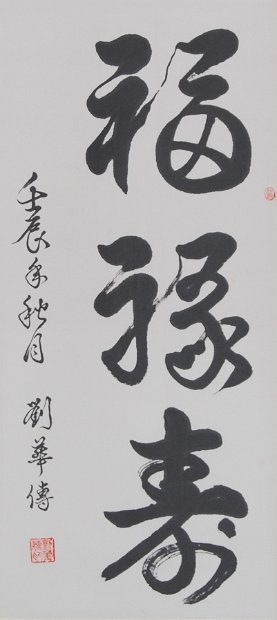 福禄寿
壬辰年秋月
劉華傳